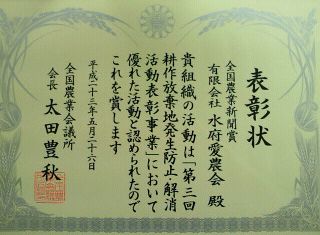 表彰状
全国農業新聞賞
有限会社 水府愛農会 殿
貴組織の活動は「第三回
耕作放棄地発生防止・解消
活動表彰事業」において
優れた活動と認められたので
これを賞します
平成二十三年五月二十六日
全国農業会議所
会長 太田豊秋